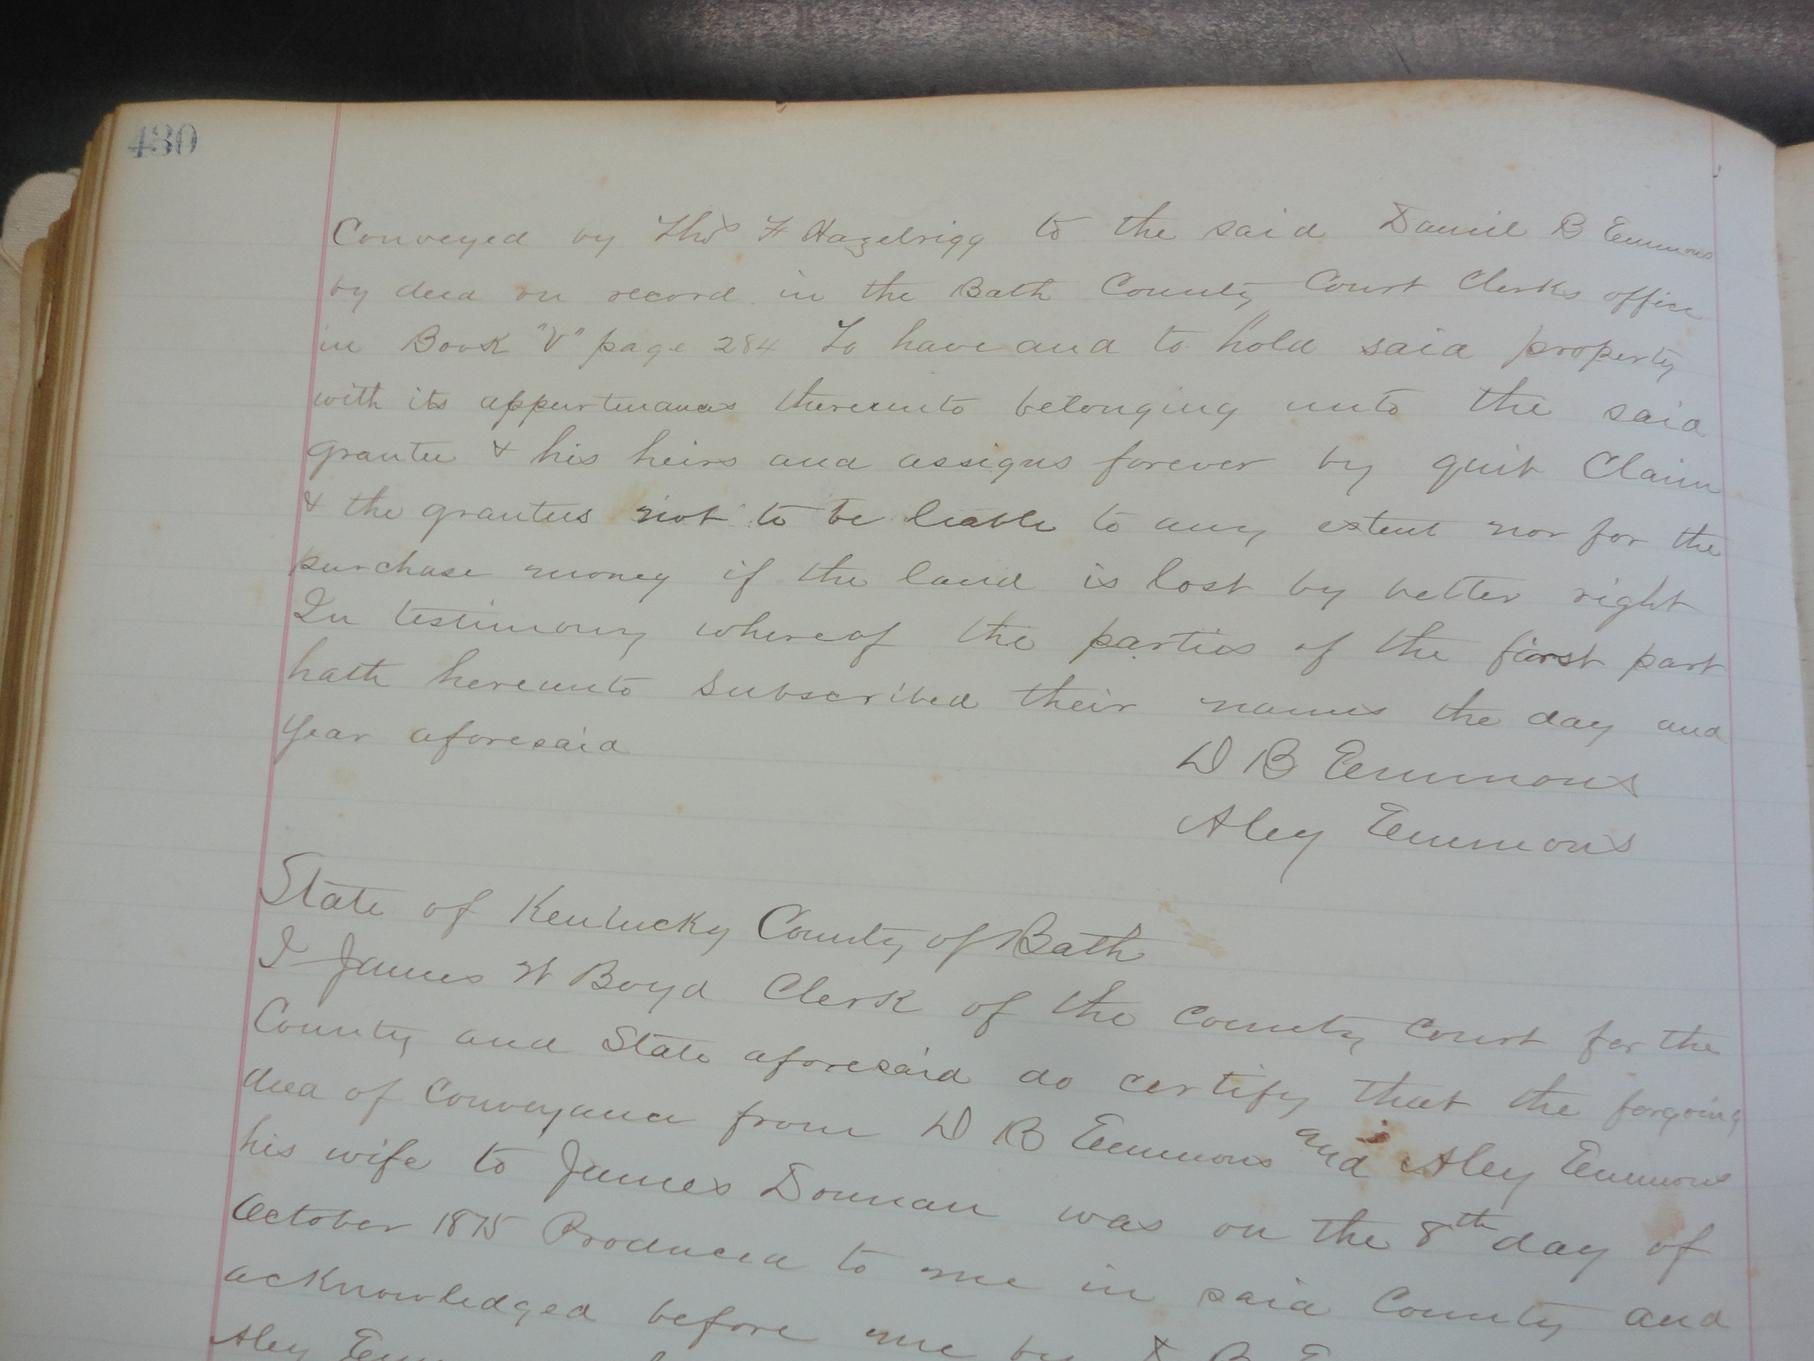 430
Conveyed by Thos F Hazelrigg to the said Daniel B Emmons
by deed on record in the Bath County Court Clerks office
in Book "V" page 284 To have and to hold said property
with its appurtenances thereunto belonging unto the said
grantee & his heirs and assigns forever by quit Claim
& the grantees not to be liable to any extent nor for the
purchase money if the land is lost by better right
In testimony whereof the parties of the first part
hath hereunto subscribed their names the day and
year aforesaid
D B Emmons
Aley Emmons
State of Kentucky County of Bath
I James W Boyd Clerk of the County Court for the
County and State aforesaid do certify that the forgoing
deed of Conveyance from D B Emmons and Aley Emmons
his wife to James Donnan was on the 8th day of
October 1875 Produced to me in said County and
acknowledged before me by D B
Aley